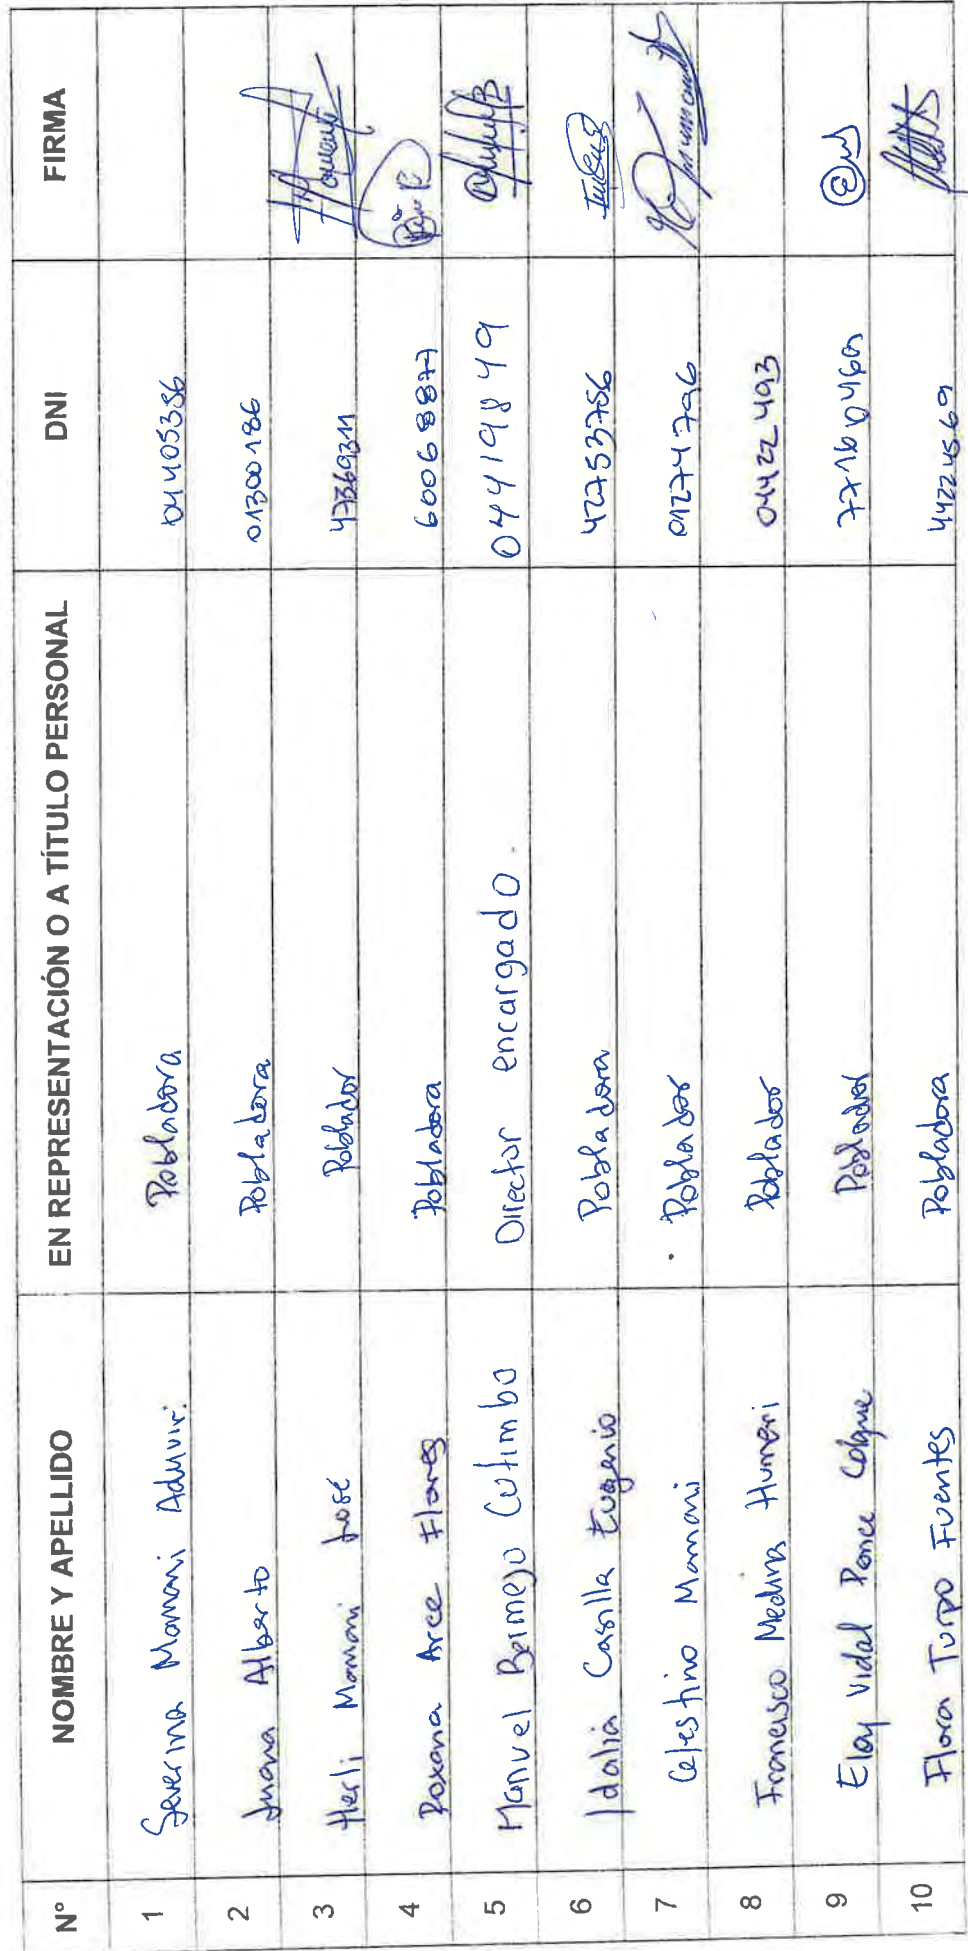 N° NOMBRE Y APELLIDO EN REPRESENTACIÓN O A TÍTULO PERSONAL DNI FIRMA
1 Severina Mamani Aduvir. Pobladora 04405356
2 Juana Alberto Pobladora 01300186
3 Herli Mamani José Poblador 47369311
4 Roxana Arce Flores Pobladora 60068877
5 Manuel Bermejo Cutimbo Director encargado. 04419849
6 Idalia Casilla Eugenio Pobladora 42753756
7 Celestino Mamani Poblador 01274796
8 Francisco Medina Humeri Poblador 04422493
9 Eloy Vidal Ponce Colque Poblador
10 Flora Turpo Fuentes Pobladora 44224569